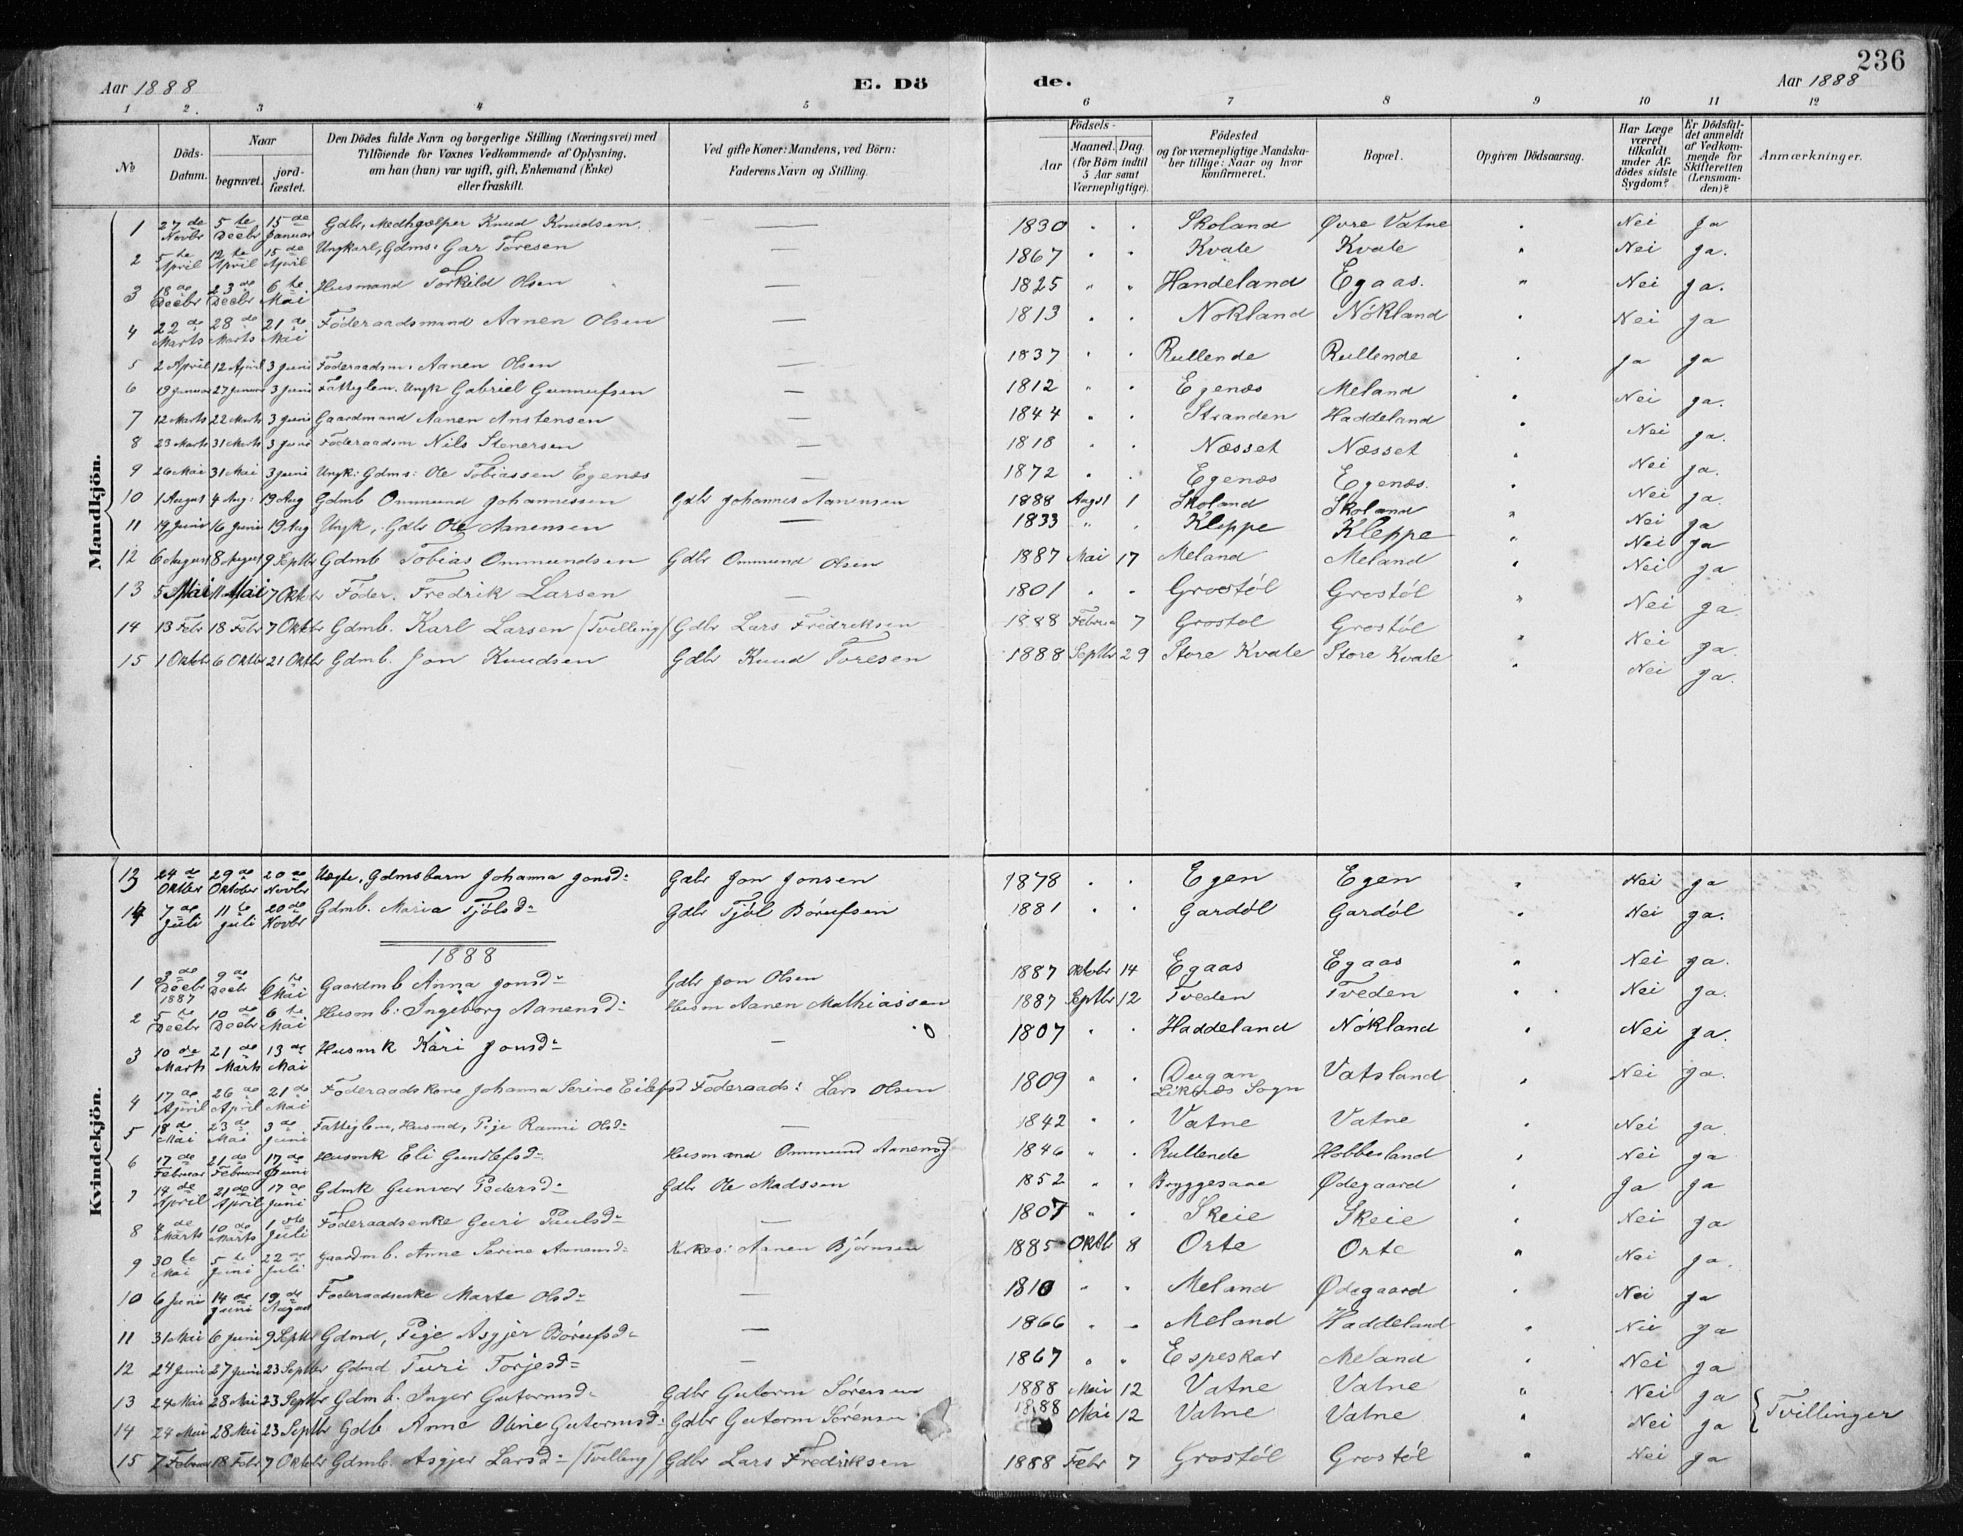 236
Aar 1888 E. Dö de. Aar 1888
1 2. 3 4 5 6 7 8 9 10 11 12
No Döds-Datum. Naar begravet. jordfæstet. Den Dödes fulde Navn og borgerlige Stilling (Næringsvei) med Tilföiende for Voxnes Vedkommende af Oplysning, om han (hun) var ugift, gift, Enkemand (Enke) eller fraskilt. Ved gifte Koner: Mandens, ved Börn: Faderens Navn og Stilling. Födsels- Aar Maaned. Dag. (for Börn indtil 5 Aar samt Værnepligtige). Födested og for værnepligtige Mandskaber tillige: Naar og hvor konfirmeret. Bopæl. Opgiven Dödsaarsag. Har Læge været tilkaldt under Afdödes sidste Sygdom? Er Dödsfaldet anmeldt af Vedkommende for Skifteretten (Lensmanden)? Anmærkninger.
Mandkjön.
1 27de Novbr 5te Decbr 15de Januar Gdbr, Medhjælper Knud Knudsen. — 1830 " " Skoland Øvre Vatne " Nei ja
2 5te April 12te April 15de April Ungkarl, Gdms: Gar Toresen — 1867 " " Kvale Kvale " Nei ja.
3 18de Decbr 23de Decbr 6te Mai Husmand Torkild Olsen — 1825 " " Handeland Egaas. " Nei ja.
4 22de Marts 28de Marts 21de Mai Föderaadsmand Aanen Olsen — 1813 " " Nökland Nökland " Nei ja
5 2 April 12 April 3 Juni Föderaadsm: Aanen Olsen — 1837 " " Rullende Rullende " ja ja
6 19 Januar 27 Januar 3 Juni Fattiglem. Ungk Gabriel Gunnufsen — 1812 " " Egenæs Meland " Nei ja.
7 12 Marts 22 Marts 3 Juni Gaardmand Aanen Anstensen — 1844 " " Stranden Haddeland " Nei ja.
8 23 Marts 31 Marts 3 Juni Föderaadsm Nils Stenersen — 1818 " " Næsset Næsset " Nei ja.
9 26 Mai 31 Mai 3 Juni Ungk: Gdms: Ole Tobiassen Egenæs 1872 " " Egenæs Egenæs. " Nei ja
10 1 August 4 Aug: 19 Aug Gdmb Ommund Johannessen Gdbr Johannes Aanensen 1888 Augst 1 Skoland Skoland " Nei ja
11 14 Juni 16 Juni 19 Aug Ungk, Gdbr Ole Aanensen — 1833 " " Kleppe Kleppe " Nei ja
12 6 August 8 August 9 Septbr Gdmb Tobias Ommundsen Gdbr Ommund Olsen 1887 Mai 17 Meland Meland " Nei ja
13 5 Mai 11 Mai 7 Oktobr Föder. Fredrik Larsen — 1801 " " Grostöl Grostöl " Nei ja
14 13 Febr 18 Febr 7 Oktbr Gdmb. Karl Larsen (Tvilling) Gdbr Lars Fredriksen 1888 Februa 7 Grostol Grostöl " Nei ja.
15 1 Oktobr 6 Oktbr 21 Oktbr Gdmb. Jon Knudsen Gdbr Knud Toresen 1888 Septbr 29 Store Kvale Store Kvale " Nei ja.
Kvindekjön.
13 24de Oktbr 29de Oktober 20de Novbr Ugte, Gdmsbarn Johanna Jonsd: Gdbr Jon Jonsen 1878 " " Egen Egen " Nei ja
14 7de Juli 11te Juli 20de Novbr Gdmb. Maria Tjölsd: Gdbr Tjöl Börufsen 1881 " " Gardöl Gardöl " Nei ja.
1888
1 3de Decbr 1887 9de Decbr 6te Mai Gaardmb Anna Jonsd: Gdbr Jon Olsen 1887 Oktobr 14 Egaas Egaas " Nei ja.
2 5te Decbr 10de Decbr 6te Mai Husmb: Ingeborg Aanensd: Husm Aanen Mathiassen 1887 Septbr 12 Tveden Tveden " Nei ja.
3 10de Marts 21de Marts 13de Mai Husmk Kari Jonsd: — 1807 " " Haddeland Nökland " Nei ja.
4 17de April 26de April 21de Mai Föderaadskone Johanna Serine Eilefsd Föderaads: Lars Olsen 1809 " " Dugan Liknæs Sogn Vatsland " Nei ja.
5 18de Mai 23de Mai 3de Juni Fattiglem, Husmd, Pige Ranni Olsd: — 1842 " " Vatne Vatne " Nei ja
6 17de Februar 21de Februar 17de Juni Husmk Eli Gundlefsd: Husmand Ommund Aanensen 1846 " " Rullende Hobbesland " Nei ja
7 14de April 21de April 17de Juni Gdmk Gunvor Pedersd: Gdbr Ole Madssen 1852 " " Bryggesaae Ødegaard " Ja ja
8 4de Marts 10de Marts 1ste Juli Föderaadsenke Guri Paulsd: — 1807 " " Skeie Skeie " Nei ja
9 30te Mai 5te Juni 22de Juli Gaardmb. Anne Serine Aanensd: Kirkes: Aanen Bjørnsen 1885 Oktb 8 Orte Orte " Nei ja.
10 6 Juni 14de Juni 19de August Föderaadsenke Marte Olsd: — 1810 " " Meland Ødegaard " Nei ja
11 31 Mai 6 Juni 9 Septbr Gdmd, Pige Asgjer Börufsd: — 1866 " " Meland Haddeland " Nei ja
12 24 Juni 27 Juni 23 Septbr Gdmd Turi Torjesd: — 1867 " " Espeskar Meland " Nei ja
13 24 Mai 28 Mai 23 Septbr Gdmb. Inger Gutormsd: Gdbr Gutorm Sörensen 1888 Mai 12 Vatne Vatne " Nei ja
14 24 Mai 28 Mai 23 Septbr Gdb Anne Oline Gutormsd: Gdbr Gutorm Sörensen 1888 Mai 12 Vatne Vatne " Nei ja Tvillinger
15 7 Februar 18 Febr 7 Oktobr Gdmb. Asgjer Larsd: (Tvilling) Gdbr Lars Fredriksen 1888 Febr 7 Grostöl Grostöl " Nei ja